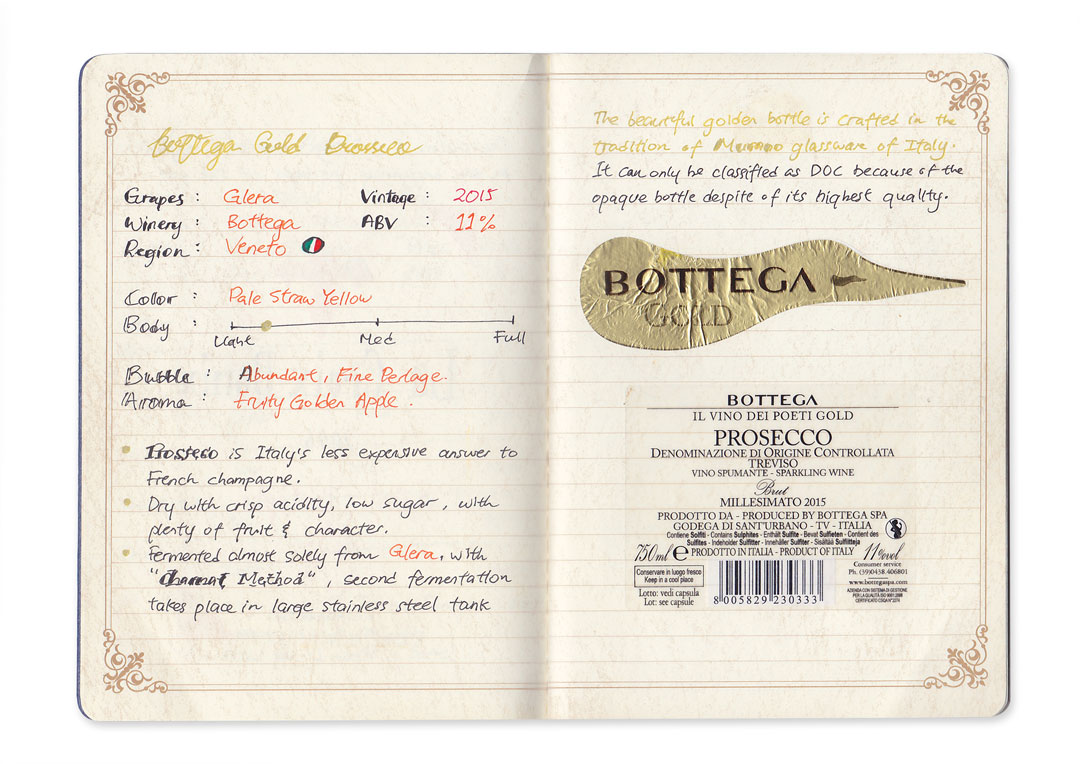 Bottega Gold Prosseco
Grapes : Glera
Vintage : 2015
Winery : Bottega
ABV : 11%
Region : Veneto
Color : Pale Straw Yellow
Body :
Light Med Full
Bubble : Abundant, Fine Perlage.
Aroma : Fruity Golden Apple.
• Prosseco is Italy's less expensive answer to
French champagne.
• Dry with crisp acidity, low sugar, with
plenty of fruit & character.
• Fermented almost solely from Glera, with
"Charmat Method", second fermentation
takes place in large stainless steel tank
The beautiful golden bottle is crafted in the
tradition of glassware of Italy.
It can only be classified as DOC because of the
opaque bottle despite of its highest quality.
BOTTEGA
GOLD
BOTTEGA
IL VINO DEI POETI GOLD
PROSECCO
DENOMINAZIONE DI ORIGINE CONTROLLATA
TREVISO
VINO SPUMANTE - SPARKLING WINE
Brut
MILLESIMATO 2015
PRODOTTO DA - PRODUCED BY BOTTEGA SPA
GODEGA DI SANT'URBANO - TV - ITALIA
Contiene Solfiti - Contains Sulphites - Enthält Sulfite - Bevat Sulfieten - Contient des
Sulfites - Indeholder Sulfitter - Innehåller Sulfiter - Sisältää Sulfiitteja
750 ml e PRODOTTO IN ITALIA - PRODUCT OF ITALY 11%vol
Conservare in luogo fresco
Keep in a cool place
Lotto: vedi capsula
Lot: see capsule
8 005829 230333
Consumer service
Ph. (39)0438.406801
www.bottegaspa.com
AZIENDA CON SISTEMA DI GESTIONE
PER LA QUALITÀ ISO 9001:2008